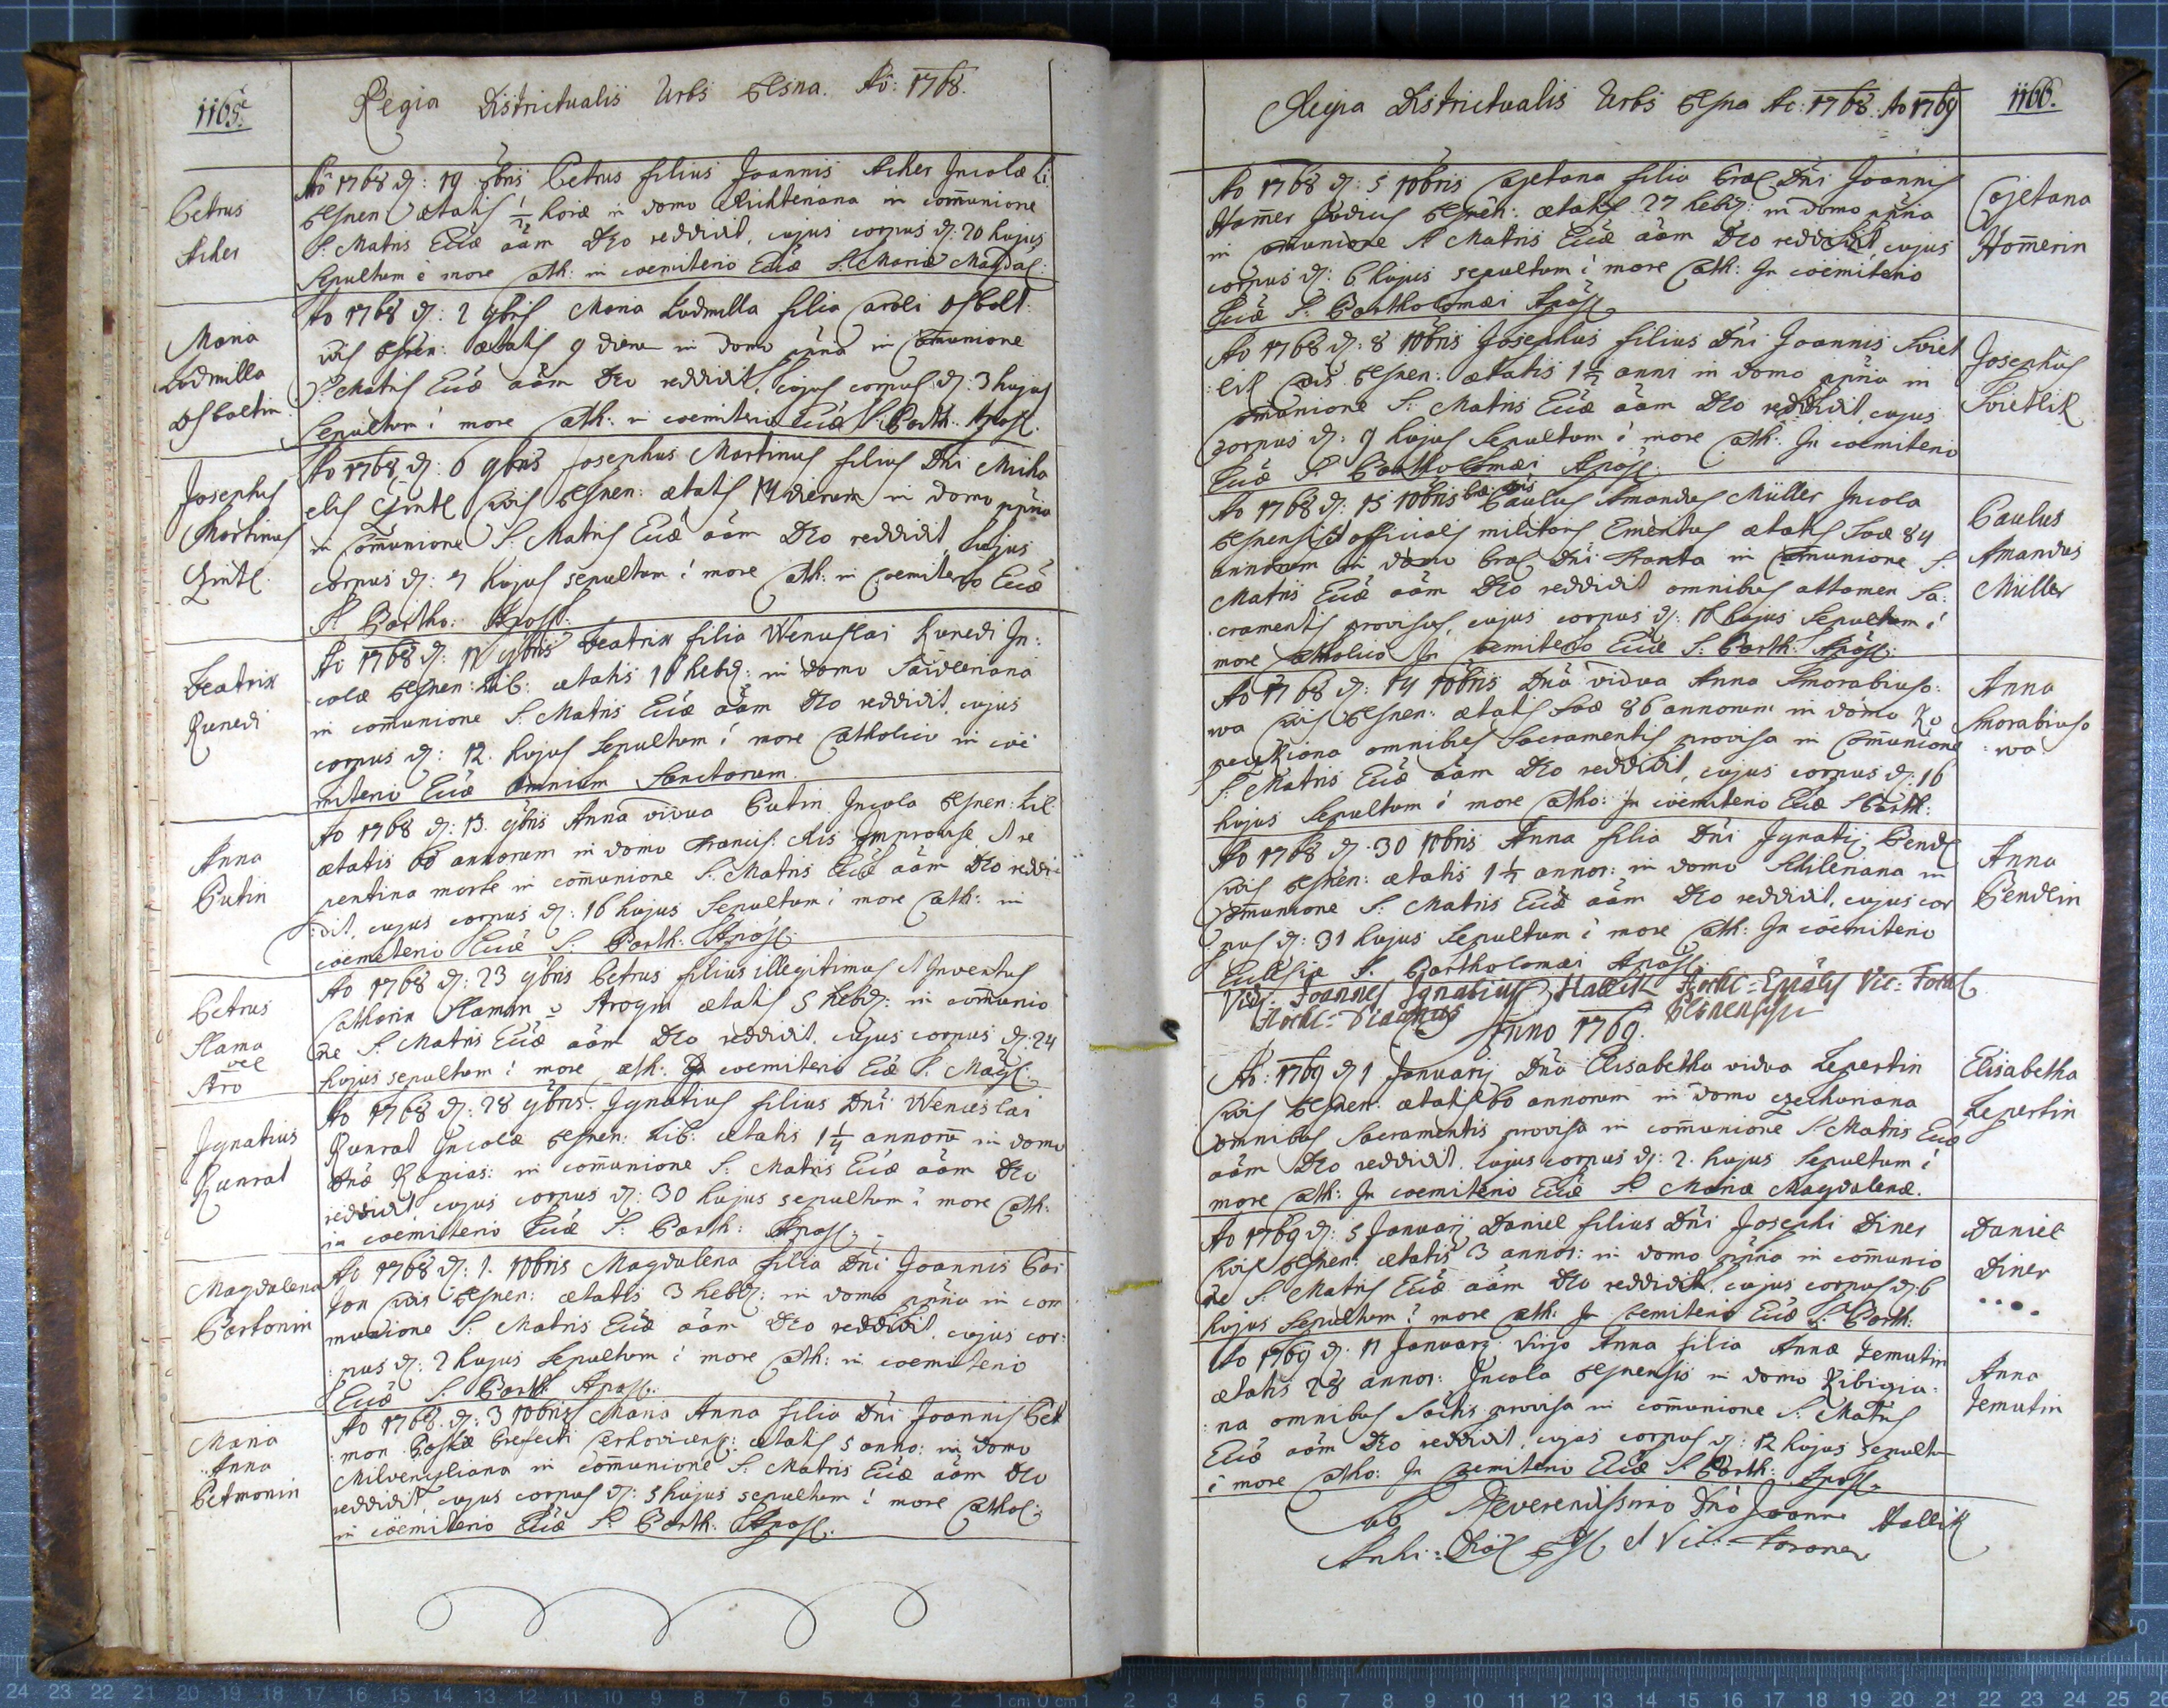 1165.
Regia Districtualis Urbs Plsna. Ao: 1768.
Petrus
Acher
Ao 1768 d: 19 8bris Petrus filius Joannis Acher Incolæ Li
Plsnen ætatis 1/2 horæ in domo Richteriana in com̄unione
S. Matris Eccæ aãm Deo reddidit, cujus corpus d: 20 hujus
sepultum ē more Cath: in coemiterio Eccæ S. Mariæ Magdal:
Maria
Ludmilla
Osboltin
Ao 1768 d: 2 9bris Maria Ludmilla filia Caroli Osbolt
Civis Plsnen: ætatis 9 dierū in domo ppria in Com̄unione
S. Matris Eccæ aãm Deo reddidit, cujus corpus d: 3 hujus
sepultum ē more Cath: in coemiterio Eccæ S. Barth: Apost.
Josephus
Martinus
Gintl.
Ao 1768 d: 6 9bris Josephus Martinus filius Dñi Micha
elis Gintl Civis Plsnen: ætatis 14 dierum in domo ppria
in Com̄unione S. Matris Eccæ aãm Deo reddidit, cujus
corpus d: 7 hujus sepultum ē more Cath: in Coemiterio Eccæ
S. Bartho: Apost.
Beatrix
Kunedi
Ao 1768 d: 11 9bris Beatrix filia Wenceslai Kunedi In:
colæ Plsnen: Lib: ætatis 16 hebd: in domo Saidleriana
in com̄unione S. Matris Eccæ aãm Deo reddidit, cujus
corpus d: 12. hujus Sepultum ē more Catholico in coe
miterio Eccæ Omnium Sanctorum.
Anna
Putin
Ao 1768 d: 13. 9bris Anna vidua Putin Incola Plsnen: Lib:
ætatis 66 annorum in domo Improvise et re
pentina morte in com̄unione S. Matris Eccæ aãm Deo reddi
dit, cujus corpus d: 16 hujus Sepultum ē more Cath: in
coemiterio Eccæ S. Barth: Apost.
Petrus
Slama
vel
Aro
Ao 1768 d: 23 9bris Petrus filius illegitimus et Inventus
Catharin Slamin Arogin ætatis 5 hebd: in com̄unio
ne S. Matris Eccæ aãm Deo reddidit, cujus corpus d: 24
hujus sepultum ē more Cath: In coemiterio Eccæ S. Magd:
Ignatius
Kunrat
Ao 1768 d: 28 9bris. Ignatius filius Dñi Wenceslai
Kunrat Incolæ Plsnen: Lib: ætatis 1 1/4 annorū in domo
Dñæ in com̄unione S. Matris Eccæ aãm Deo
reddidit cujus corpus d: 30 hujus sepultum ē more Cath:
in coemiterio Eccæ S. Barth: Apost.
Magdalena
Partonin
Ao 1768 d: 1. 10bris Magdalena filia Dñi Joannis Par
ton Civis Plsnen: ætatis 3 hebd: in domo ppria in com
munione S. Matris Eccæ aãm Deo reddidit, cujus cor:
pus d: 2 hujus Sepultum ē more Cath: in coemiterio
Eccæ S. Barth: Apost.
Maria
Anna
Petmonin
Ao 1768. d: 3 10bris Maria Anna filia Dñi Joannis Pet
mon Postæ Præfecti Cerhovicens: ætatis 5 anno: in domo
in com̄unione S. Matris Eccæ aãm Deo
reddidit, cujus corpus d: 5 hujus sepultum ē more Cathol:
in coemiterio Eccæ S. Barth: Apost.
Regia Districtualis Urbs Plsna Ao: 1768. Ao 1769
1166.
Ao 1768 d: 5 10bris Cajetana filia Præ: Dñi Joannis
Hom̄er Judicis Plsnen: ætatis 27 hebd: in domo ppria
in Com̄unione S. Matris Eccæ aãm Deo reddidit cujus
corpus d: 6 hujus sepultum ē more Cath: In coemiterio
Eccæ S. Bartholomæi Apost.
Cajetana
Hom̄erin
Ao 1768 d: 8 10bris Josephus filius Dñi Joannis Sviet
lik Civis Plsnen: ætatis 1 1/2 anni in domo ppria in
Com̄unione S. Matris Eccæ aãm Deo reddidit, cujus
Corpus d: 9 hujus Sepultum ē more Cath: In coemiterio
Eccæ S. Bartholomæi Apost.
Josephus
Svietlik
Ao 1768 d: 15 10bris Paulus Amandus Müller Incola
Plsnensis et officialis militaris Emeritus ætatis suæ 84
annorum in domo Præ: Dñi in Com̄unione S.
Matris Eccæ aãm Deo reddidit omnibus attamen Sa:
cramentis provisus, cujus corpus d: 18 hujus Sepultum ē
more Catholico In Cemiterio Eccæ S. Barth: Apost.
Paulus
Amandus
Müller
Ao 1768 d: 14 10bris Dñā vidua Anna Smorabiuso:
wa Civis Plsnen: ætatis suæ 86 annorum in domo Ko
peckiana omnibus Sacramentis provisa in Com̄unione
S. Matris Eccæ aãm Deo reddidit, cujus corpus d: 16
hujus Sepultum ē more Catho: In coemiterio Eccæ S Barth:
Anna
Smorabiuso
wa
Ao 1768 d. 30 10bris Anna filia Dñi Ignatij Pendl
Civis Plsnen: ætatis 1 1/2 annor: in domo in
Com̄unione S. Matris Eccæ aãm Deo reddidit, cujus cor
pus d: 31 hujus Sepultum ē more Cath: In coemiterio
Ecclesiæ S. Bartholomæi Apost.
Anna
Pendlin
Vidi Joannes Ignatius Hallik Vic: Foran
Plsnensis
Anno 1769.
Ao: 1769 d 1 Januarij Dñā Elisabetha vidua Lepertin
Civis Plsnen: ætatis 60 annorum in domo czechuriana
omnibus Sacramentis provisa in com̄unione S. Matris Eccæ
aãm Deo reddidit, cujus corpus d: 2. hujus Sepultum ē
more Cath: In coemiterio Eccæ S. Mariæ Magdalenæ.
Elisabetha
Lepertin
Ao 1769 d: 5 Januarij Daniel filius Dñi Josephi Diner
Civis Plsnen: ætatis 3 annor: in domo ppria in com̄unio
ne S. Matris Eccæ aãm Deo reddidit, cujus corpus d: 6
hujus Sepultum ē more Cath: In Cemiterio Eccæ S. Barth:
Daniel
Diner
Ao 1769 d: 11 Januarij Virgo Anna filia Annæ Jemutin
ætatis 28 annor: Incola Plsnensis in domo Ribigia:
na omnibus Sactis provisa in com̄unione S. Matris
Eccæ aãm Deo reddidit, cujus corpus d: 12 hujus sepultū
ē more Catho: In Cemiterio Eccæ S. Barth: Apost.
Anna
Jemutin
Reverendissimo Dño Joanne Hallik
et Vic: Foraneo